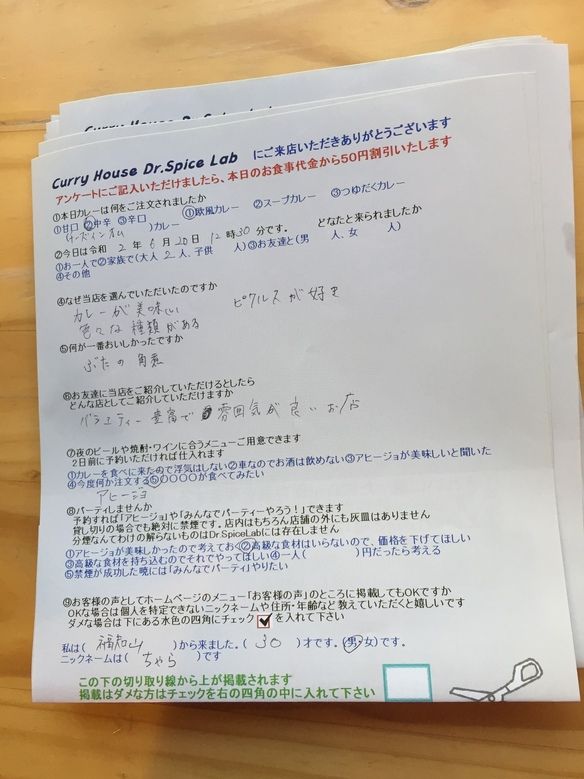 Curry House Dr.Spice Lab にご来店いただきありがとうございます
アンケートにご記入いただけましたら、本日のお食事代金から50円割引いたします
①本日カレーは何をご注文されましたか
①甘口 ②中辛 ③辛口 ①欧風カレー ②スープカレー ③つゆだくカレー
( )カレー
②今日は令和 2年 6月 20日 12時30分です。 どなたと来られましたか
①お一人で②家族で(大人 2人、子供 人)③お友達と(男 人、女 人)
④その他
④なぜ当店を選んでいただいたのですか
カレーが美味しい ピクルスが好き
色々な種類がある
⑤何が一番おいしかったですか
ぶたの角煮
⑥お友達に当店をご紹介していただけるとしたら
どんな店としてご紹介していただけますか
バラエティー豊富で雰囲気が良いお店
⑦夜のビールや焼酎・ワインに合うメニューご用意できます
2日前に予約いただければ仕入れます
①カレーを食べに来たので浮気はしない②車なのでお酒は飲めない③アヒージョが美味しいと聞いた
④今度何か注文する⑤○○○○が食べてみたい
アヒージョ
⑧パーティしませんか
予約すれば「アヒージョ」や「みんなでパーティーやろう!」できます
貸し切りの場合でも絶対に禁煙です。店内はもちろん店舗の外にも灰皿はありません
分煙なんてわけの解らないものはDr.SpiceLabには存在しません
①アヒージョが美味しかったので考えておく②高級な食材はいらないので、価格を下げてほしい
③高級な食材を持ち込むのでそれでやってほしい④一人( )円だったら考える
⑤禁煙が成功した暁には「みんなでパーティ」やりたい
⑨お客様の声としてホームページのメニュー「お客様の声」のところに掲載してもOKですか
OKな場合は個人を特定できないニックネームや住所・年齢など教えていただくと嬉しいです
ダメな場合は下にある水色の四角にチェック を入れて下さい
私は( 福知山 )から来ました。( 30 )才です。(男・女)です。
ニックネームは( ちゃら )です
この下の切り取り線から上が掲載されます
掲載はダメな方はチェックを右の四角の中に入れて下さい